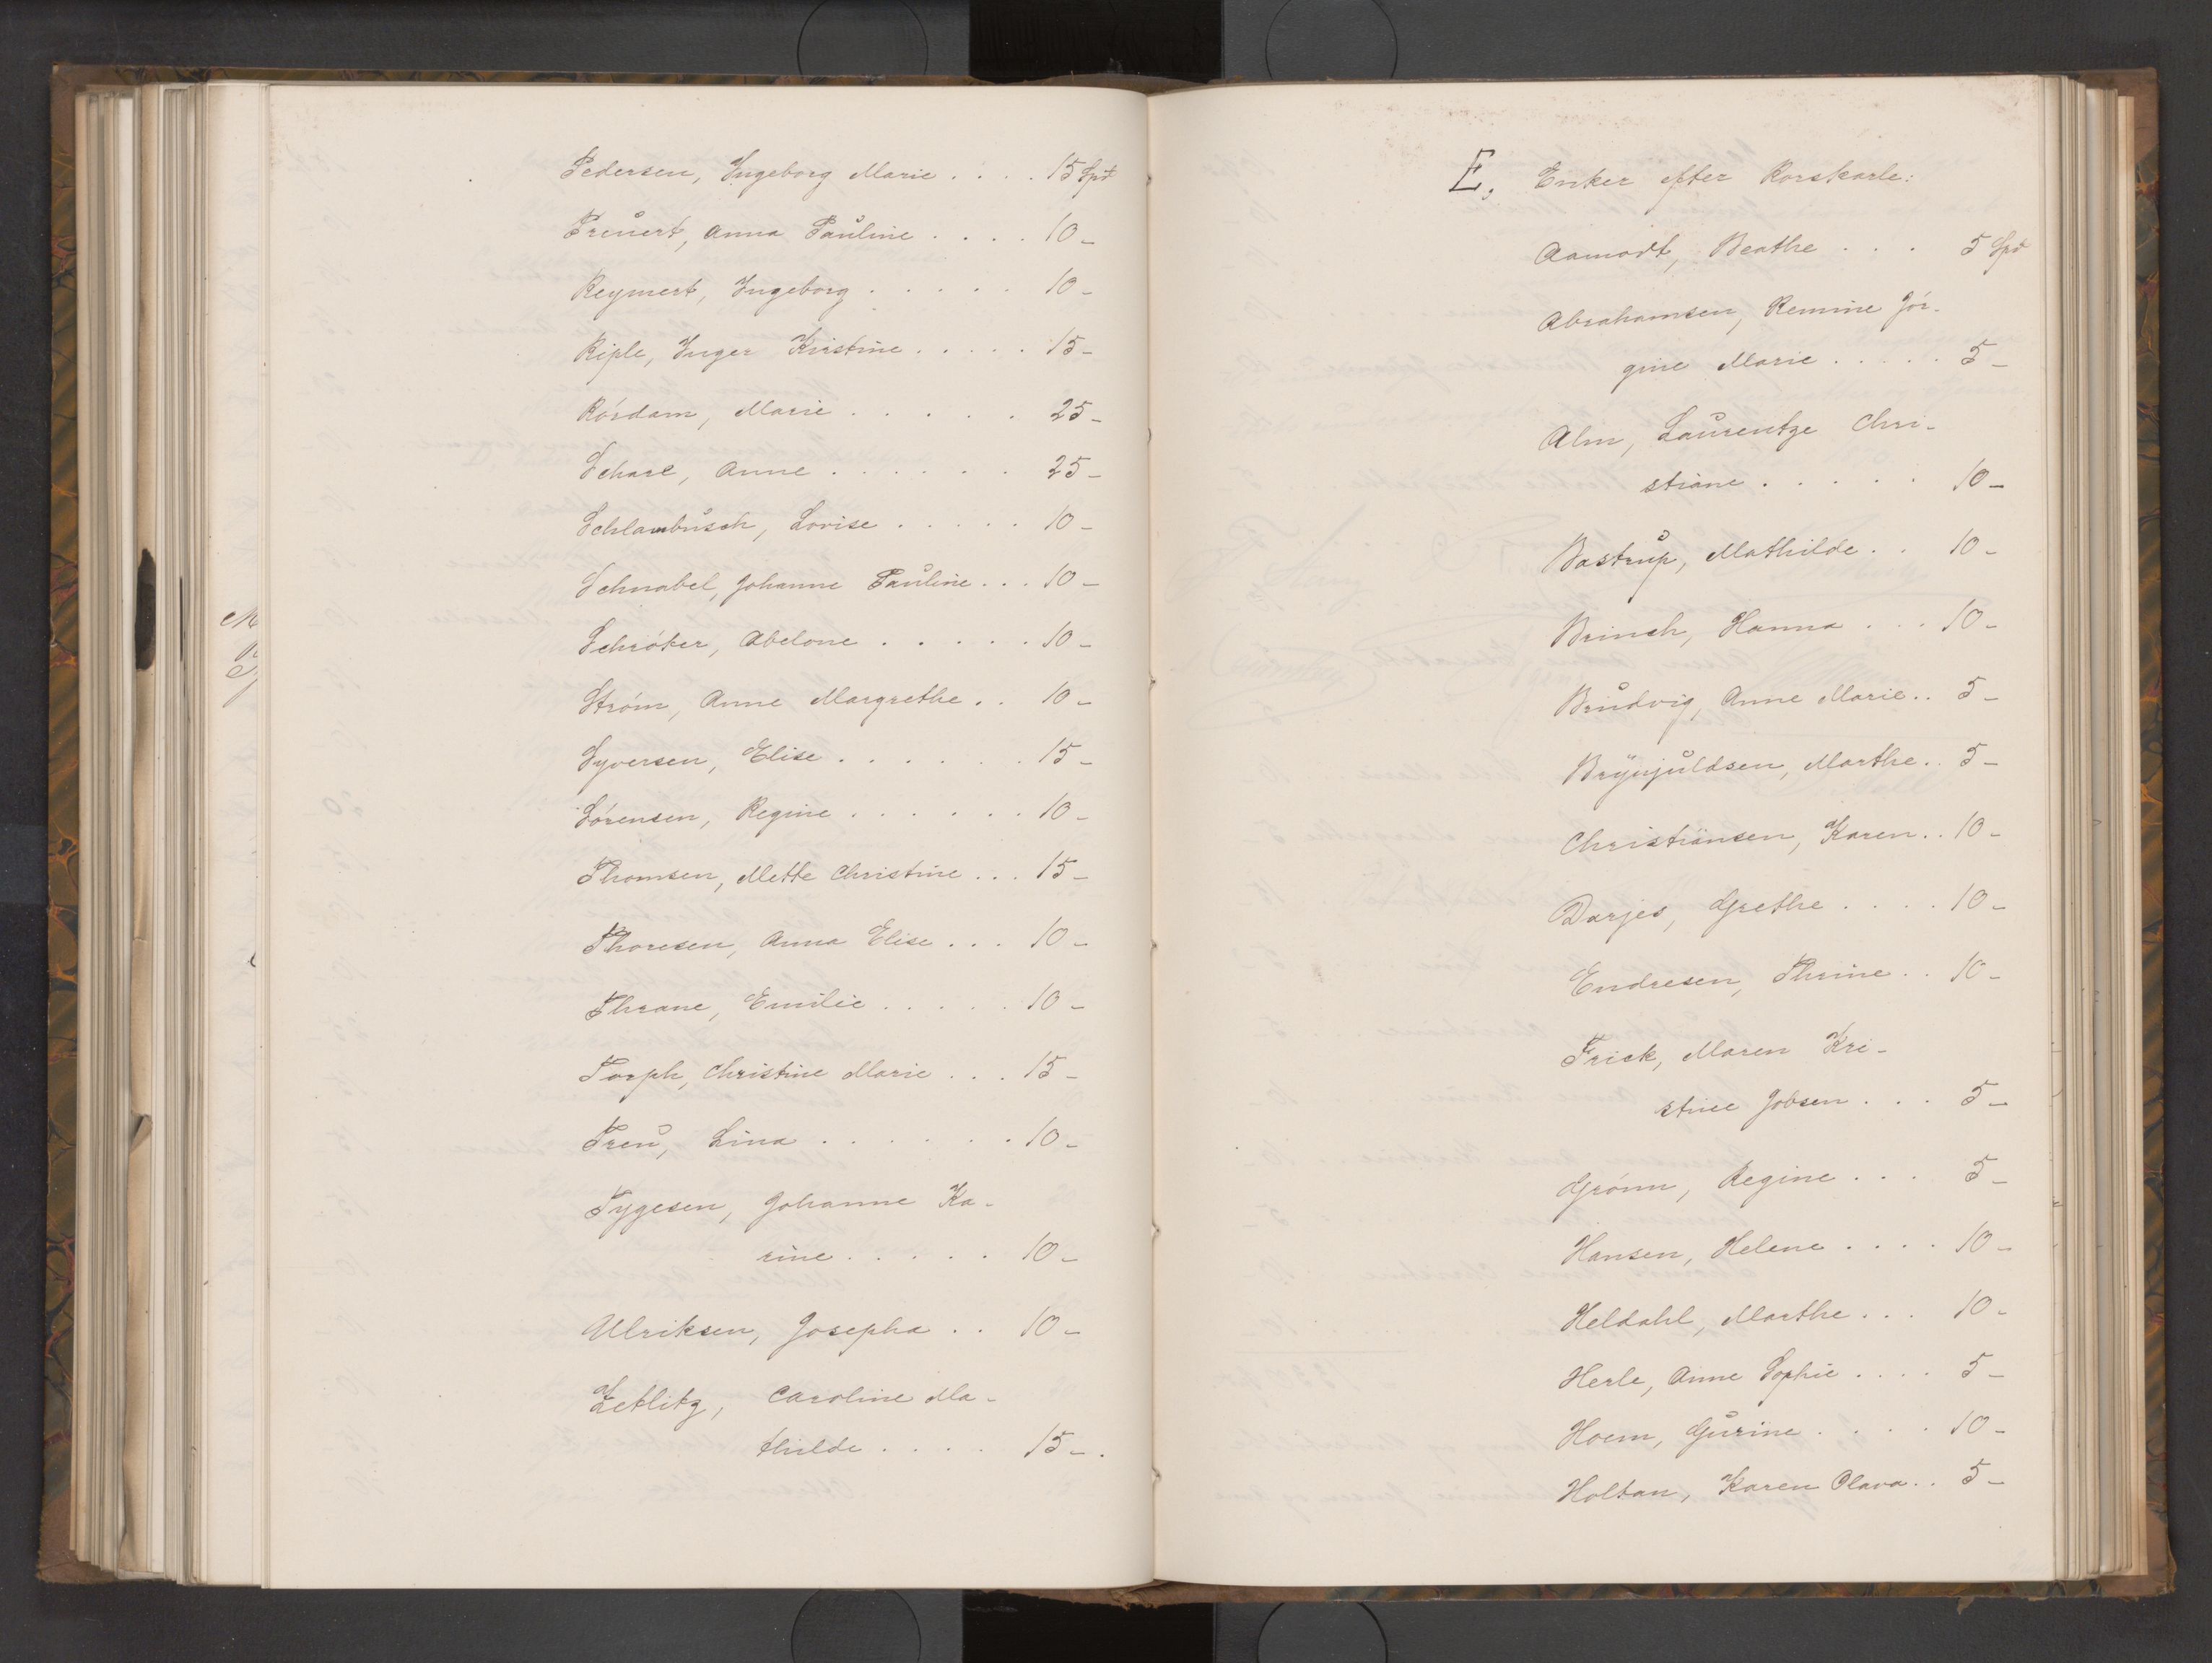 Pedersen, Ingeborg Marie . . . . 15 Spd
Preuert, Anna Pauline . . . . 10 –
Reymert, Ingeborg . . . . . 10 –
Riple, Inger Kirstine . . . . . 15 –
Rórdam, Marie . . . . . 25 –
Schare, Anne . . . . . . 25 –
Schlambusch, Lovise . . . . . 10 –
Schnabel, Johanne Pauline . . . 10 –
Schróter, Abelone . . . . . 10 –
Stróm, Anne Margrethe . . 10 –
Syversen, Elise . . . . . . 15 –
Sórensen, Regine . . . . . . 10 –
Thomsen, Mette Christine . . . 15 –
Thoresen, Anna Elise . . . 10 –
Thrane, Emilie . . . . . 10 –
Torph, Christine Marie . . . 15 –
Treu, Lina . . . . . . . 10 –
Tygesen, Johanne Ka-
rine . . . . . 10 –
Ulriksen, Josepha . . 10 –
Zetlitz, Caroline Ma-
thilde . . . . 15 – .
E, Enker efter Korskarle:
Aamodt, Beathe . . . 5 Spd
Abrahamsen, Remine Jór-
gine Marie . . . . . 5 –
Alm, Laurentze Chri-
stiane . . . . . 10 –
Bastrup, Mathilde . . 10 –
Brinch, Hanna . . . 10 –
Brudvig, Anne Marie . . 5 –
Brynjuldsen, Marthe . . 5 –
Christiansen, Karen . . 10 –
Darjes, Grethe . . . . 10 –
Endresen, Thrine . . 10 –
Frick, Maren Kri-
stine Jobsen . . . 5 –
Grónn, Regine . . . 5 –
Hansen, Helene . . . . 10 –
Heldahl, Marthe . . . 10 –
Herle, Anne Sophie . . . . 5 –
Hoem, Gurine . . . . 10 –
Holtan, Karen Olava . . 5 –